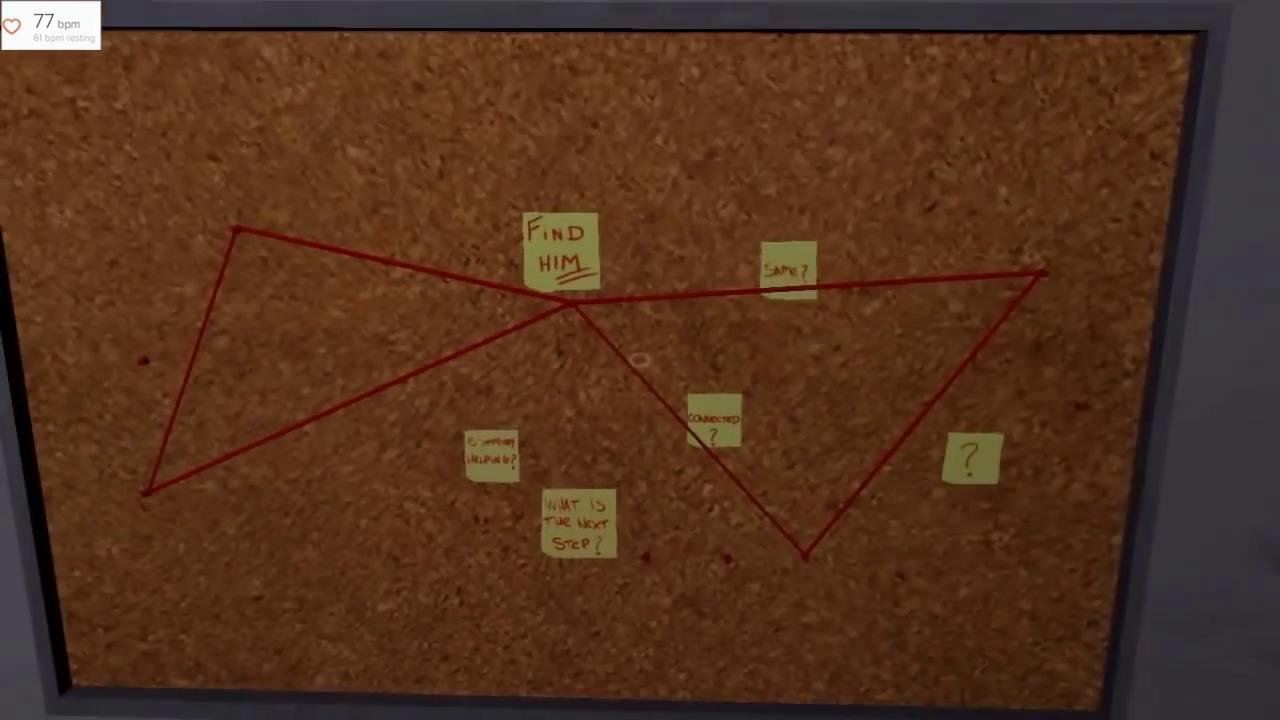 77 bpm
61 bpm resting
FIND
HIM
SAME?
CONNECTED
?
HELPING?
?
WHAT IS
THE NEXT
STEP?